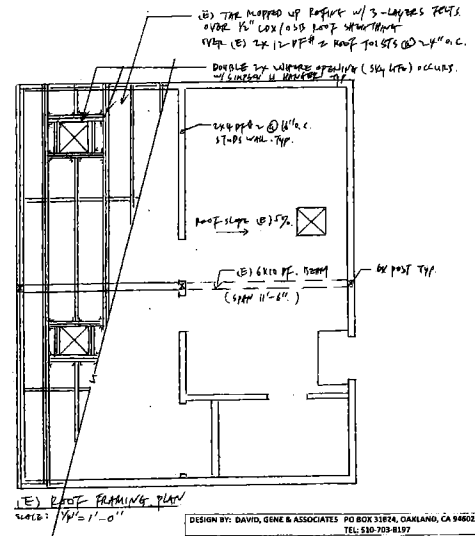 (E) TAR MOPPED UP ROOFING W/ 3-LAYERS FELTS.
OVER 1/2" CDX/OSB ROOF SHEATHING
OVER (E) 2X12 DF#2 ROOF JOISTS @ 24" O.C.
DOUBLE 2X WHERE OPENING (SKY LITE) OCCURS.
W/ SIMPSON U HANGER TYP
2X4 DF#2 @ 16" O.C.
STUDS WALL. TYP.
ROOF SLOPE (E) 5%
(E) 6X10 DF. BEAM
(SPAN 11'-6")
6X POST TYP.
(E) ROOF FRAMING PLAN
SCALE: 1/4"=1'-0"
DESIGN BY: DAVID, GENE & ASSOCIATES PO BOX 31824, OAKLAND, CA 94602
TEL: 510-703-8197